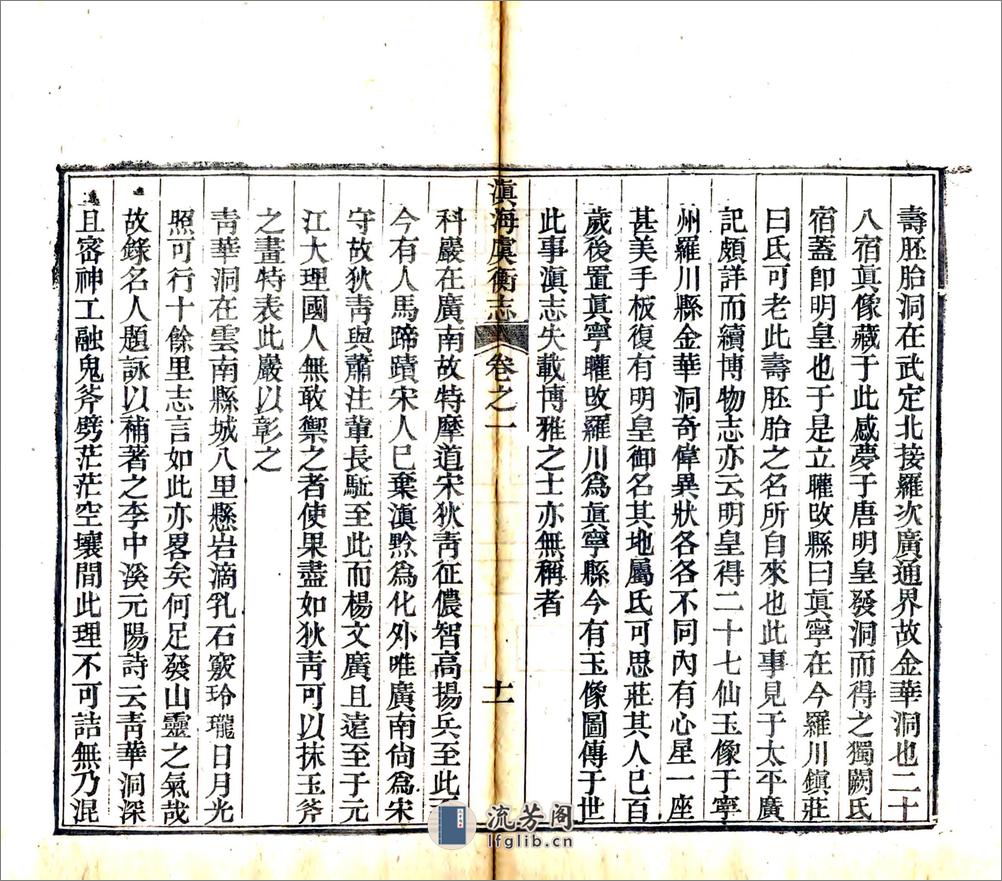 壽胚胎洞在武定北接羅次廣通界故金華洞也二十
八宿眞像藏于此感夢于唐明皇發洞而得之獨闕氏
宿蓋卽明皇也于是立矔攺縣曰眞寧在今羅川鎮莊
曰氏可老此壽胚胎之名所自來也此事見于太平廣
記頗詳而續博物志亦云明皇得二十七仙玉像于寧
州羅川縣金華洞奇偉異狀各各不同內有心星一座
甚美手板復有明皇御名其地屬氏可思莊其人已百
歲後置眞寧矔攺羅川爲眞寧縣今有玉像圖傳于世
此事滇志失載博雅之士亦無稱者
滇海虞衡志
卷之一
十一
科巖在廣南故特摩道宋狄靑征儂智高揚兵至此
今有人馬蹄蹟宋人已棄滇黔爲化外唯廣南尙爲宋
守故狄靑與蕭注輩長駈至此而楊文廣且遠至于元
江大理國人無敢禦之者使果盡如狄靑可以抹玉斧
之畫特表此巖以彰之
靑華洞在雲南縣城八里懸岩滴乳石竅玲瓏日月光
照可行十餘里志言如此亦畧矣何足發山靈之氣哉
故錄名人題詠以補著之李中溪元陽詩云靑華洞深
且審神工融鬼斧劈茫茫空壤間此理不可詰無乃混
流芳阁
lfglib.cn